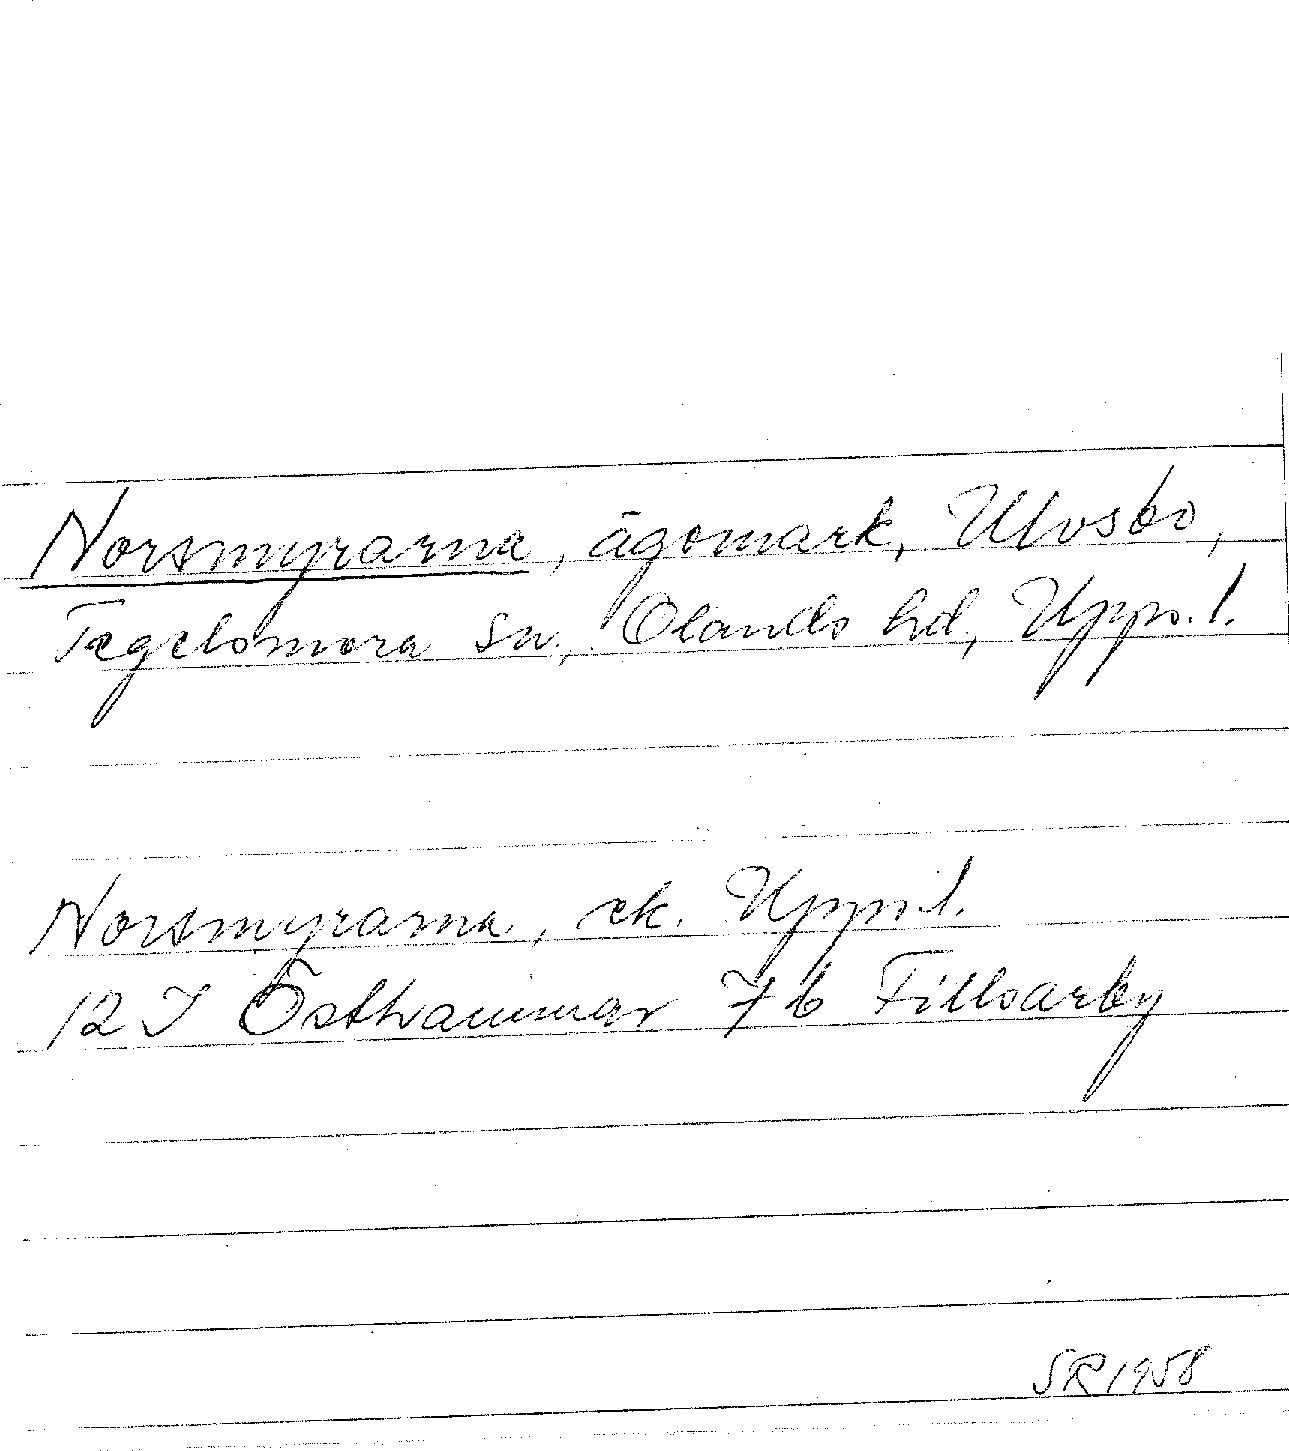 Norsmyrarna, ägomark, Ulvsbo,
Tegelsmora sn., Olands hd, Upps. l.
Norsmyrarna, ek. Upps. l.
12 I Östhammar 7 b Fillsarby
SR 1958